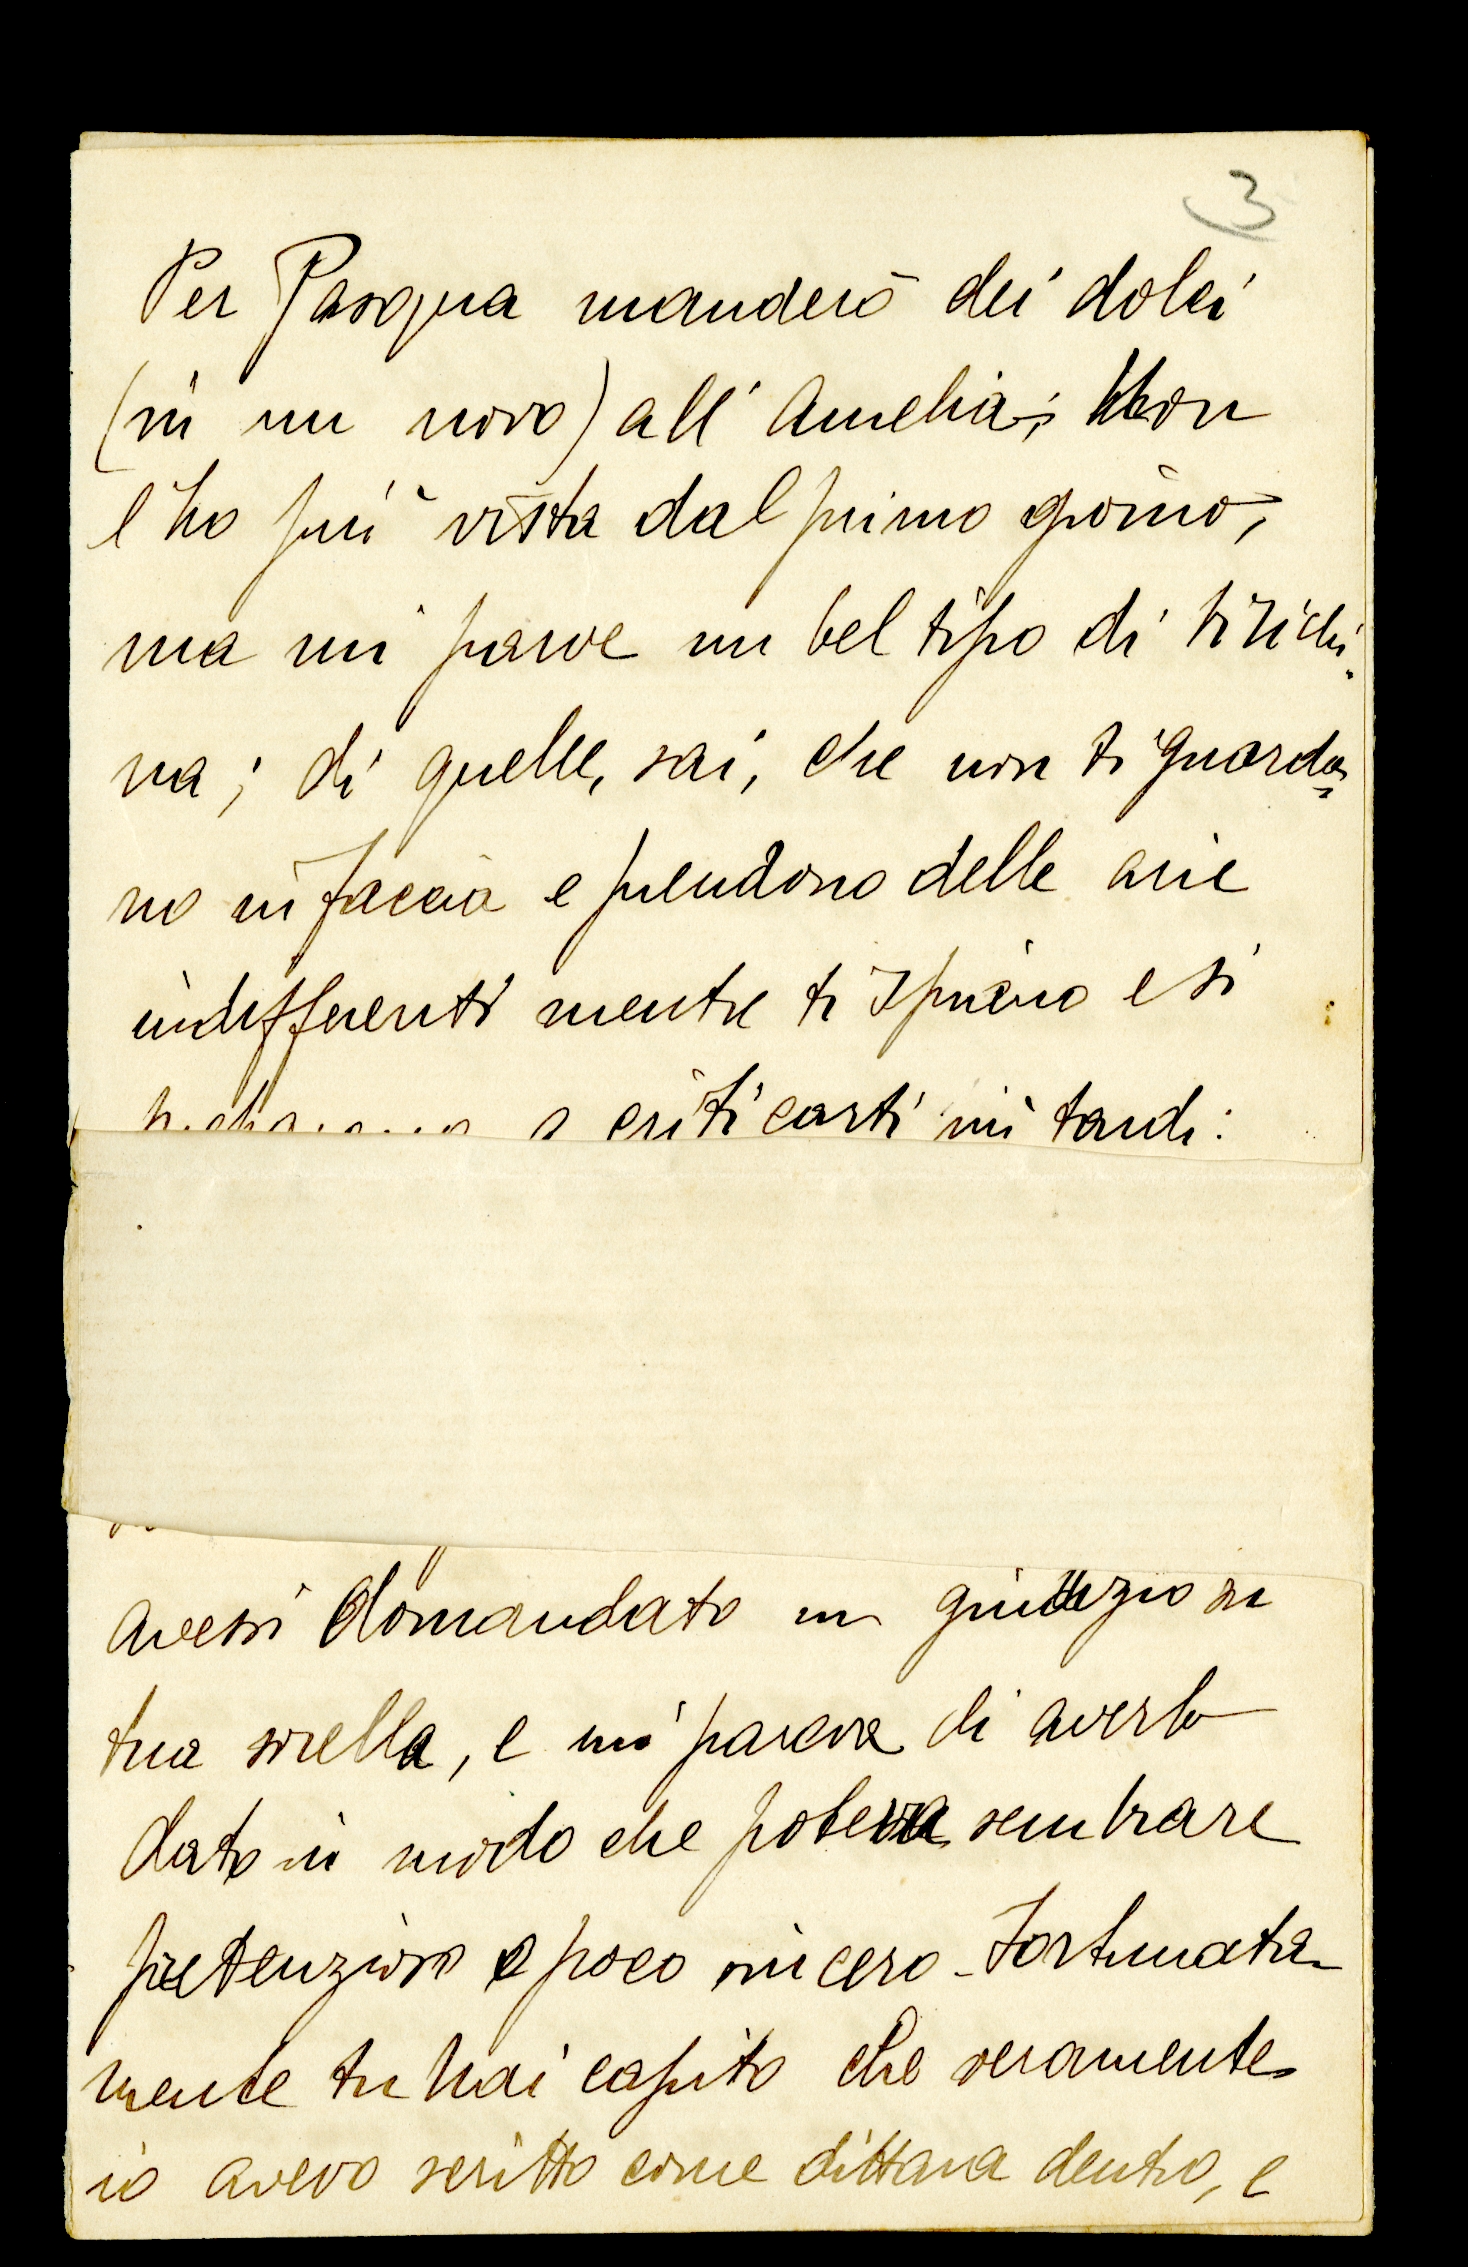 3
Per Pasqua manderò dei dolci
(in un novo) all'Amelia; Non
l'ho più vista dal primo giorno,
ma mi parve un bel tipo di birichi-
na; di quelle, sai, che non ti guarda-
no in faccia e prendono delle arie
indifferenti mentre ti spiano e si
a criticarti più tardi:
avessi domandato un giudizio su
tua sorella, e mi pareva di averlo
dato in modo che poteva sembrare
pretenzioso e poco sincero - Fortunata-
mente tu hai capito che veramente
io avevo scritto come dittava dentro, e